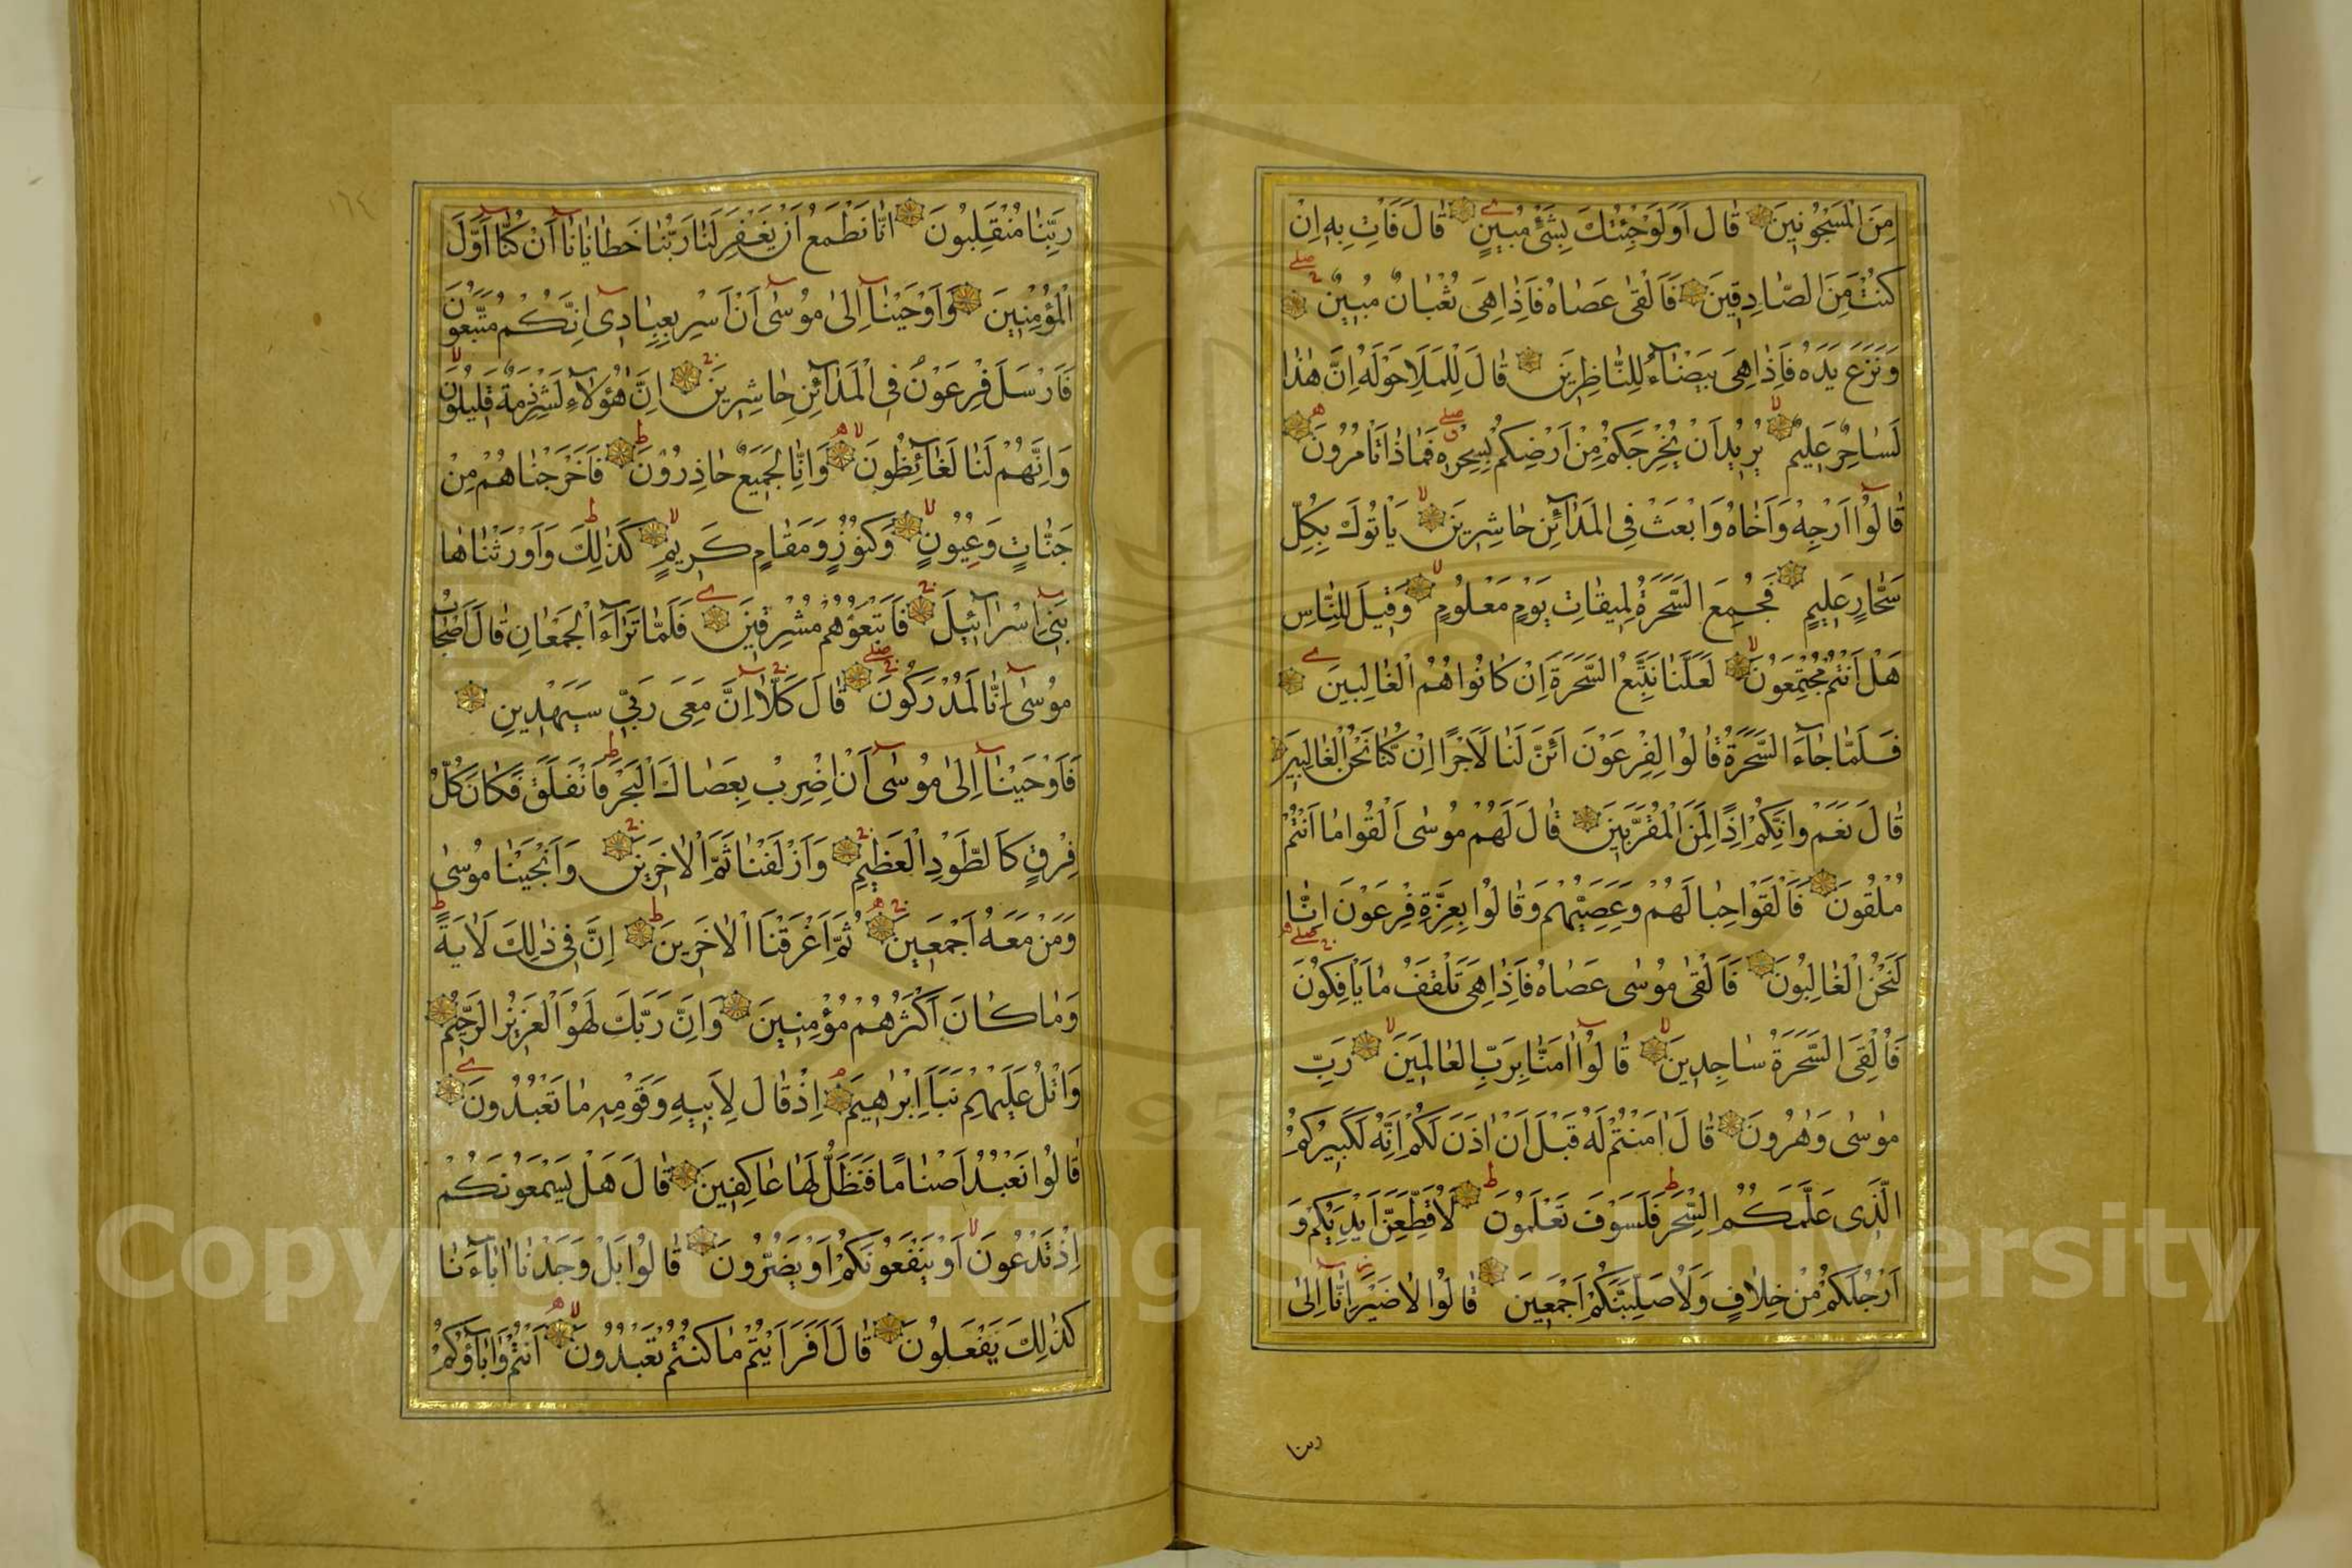 مِنَ الْمَسْجُونِينَ قَالَ اَوَلَوْ جِئْتُكَ بِشَىْءٍ مُبِينٍ قَالَ فَأْتِ بِهِ اِنْ
كُنْتَ مِنَ الصَّادِقِينَ فَاَلْقٰى عَصَاهُ فَاِذَا هِىَ ثُعْبَانٌ مُبِينٌ
وَنَزَعَ يَدَهُ فَاِذَا هِىَ بَيْضَآءُ لِلنَّاظِرِينَ قَالَ لِلْمَلَاِ حَوْلَهُ اِنَّ هٰذَا
لَسَاحِرٌ عَلِيمٌ يُرِيدُ اَنْ يُخْرِجَكُمْ مِنْ اَرْضِكُمْ بِسِحْرِهِ فَمَاذَا تَاْمُرُونَ
قَالُوٓا اَرْجِهْ وَاَخَاهُ وَابْعَثْ فِى الْمَدَآئِنِ حَاشِرِينَ يَاْتُوكَ بِكُلِّ
سَحَّارٍ عَلِيمٍ فَجُمِعَ السَّحَرَةُ لِمِيقَاتِ يَوْمٍ مَعْلُومٍ وَقِيلَ لِلنَّاسِ
هَلْ اَنْتُمْ مُجْتَمِعُونَ لَعَلَّنَا نَتَّبِعُ السَّحَرَةَ اِنْ كَانُوا هُمُ الْغَالِبِينَ
فَلَمَّا جَآءَ السَّحَرَةُ قَالُوا لِفِرْعَوْنَ اَئِنَّ لَنَا لَاَجْرًا اِنْ كُنَّا نَحْنُ الْغَالِبِينَ
قَالَ نَعَمْ وَاِنَّكُمْ اِذًا لَمِنَ الْمُقَرَّبِينَ قَالَ لَهُمْ مُوسٰى اَلْقُوا مَا اَنْتُمْ
مُلْقُونَ فَاَلْقَوْا حِبَالَهُمْ وَعِصِيَّهُمْ وَقَالُوا بِعِزَّةِ فِرْعَوْنَ اِنَّا
لَنَحْنُ الْغَالِبُونَ فَاَلْقٰى مُوسٰى عَصَاهُ فَاِذَا هِىَ تَلْقَفُ مَا يَاْفِكُونَ
فَاُلْقِىَ السَّحَرَةُ سَاجِدِينَ قَالُوٓا اٰمَنَّا بِرَبِّ الْعَالَمِينَ رَبِّ
مُوسٰى وَهٰرُونَ قَالَ اٰمَنْتُمْ لَهُ قَبْلَ اَنْ اٰذَنَ لَكُمْ اِنَّهُ لَكَبِيرُكُمُ
الَّذِى عَلَّمَكُمُ السِّحْرَ فَلَسَوْفَ تَعْلَمُونَ لَاُقَطِّعَنَّ اَيْدِيَكُمْ وَ
اَرْجُلَكُمْ مِنْ خِلَافٍ وَلَاُصَلِّبَنَّكُمْ اَجْمَعِينَ قَالُوا لَا ضَيْرَ اِنَّآ اِلٰى
ربنا
١٦٤
رَبِّنَا مُنْقَلِبُونَ اِنَّا نَطْمَعُ اَنْ يَغْفِرَ لَنَا رَبُّنَا خَطَايَانَآ اَنْ كُنَّآ اَوَّلَ
الْمُؤْمِنِينَ وَاَوْحَيْنَآ اِلٰى مُوسٰٓى اَنْ اَسْرِ بِعِبَادِىٓ اِنَّكُمْ مُتَّبَعُونَ
فَاَرْسَلَ فِرْعَوْنُ فِى الْمَدَآئِنِ حَاشِرِينَ اِنَّ هٰٓؤُلَآءِ لَشِرْذِمَةٌ قَلِيلُونَ
وَاِنَّهُمْ لَنَا لَغَآئِظُونَ وَاِنَّا لَجَمِيعٌ حَاذِرُونَ فَاَخْرَجْنَاهُمْ مِنْ
جَنَّاتٍ وَعُيُونٍ وَكُنُوزٍ وَمَقَامٍ كَرِيمٍ كَذٰلِكَ وَاَوْرَثْنَاهَا
بَنِىٓ اِسْرَآئِيلَ فَاَتْبَعُوهُمْ مُشْرِقِينَ فَلَمَّا تَرَآءَ الْجَمْعَانِ قَالَ اَصْحَابُ
مُوسٰٓى اِنَّا لَمُدْرَكُونَ قَالَ كَلَّآ اِنَّ مَعِىَ رَبِّى سَيَهْدِينِ
فَاَوْحَيْنَآ اِلٰى مُوسٰٓى اَنِ اضْرِبْ بِعَصَاكَ الْبَحْرَ فَانْفَلَقَ فَكَانَ كُلُّ
فِرْقٍ كَالطَّوْدِ الْعَظِيمِ وَاَزْلَفْنَا ثَمَّ الْاٰخَرِينَ وَاَنْجَيْنَا مُوسٰى
وَمَنْ مَعَهُ اَجْمَعِينَ ثُمَّ اَغْرَقْنَا الْاٰخَرِينَ اِنَّ فِى ذٰلِكَ لَاٰيَةً
وَمَا كَانَ اَكْثَرُهُمْ مُؤْمِنِينَ وَاِنَّ رَبَّكَ لَهُوَ الْعَزِيزُ الرَّحِيمُ
وَاتْلُ عَلَيْهِمْ نَبَاَ اِبْرٰهِيمَ اِذْ قَالَ لِاَبِيهِ وَقَوْمِهِ مَا تَعْبُدُونَ
قَالُوا نَعْبُدُ اَصْنَامًا فَنَظَلُّ لَهَا عَاكِفِينَ قَالَ هَلْ يَسْمَعُونَكُمْ
اِذْ تَدْعُونَ اَوْ يَنْفَعُونَكُمْ اَوْ يَضُرُّونَ قَالُوا بَلْ وَجَدْنَا اٰبَآءَنَا
كَذٰلِكَ يَفْعَلُونَ قَالَ اَفَرَاَيْتُمْ مَا كُنْتُمْ تَعْبُدُونَ اَنْتُمْ وَاٰبَآؤُكُمُ
Copyright © King Saud University